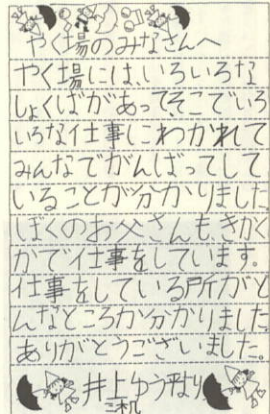 やく場のみなさんへ
やく場には、いろいろな
しょくばがあってそこでいろ
いろな仕事にわかれて
みんなでがんばってして
いることが分かりました
ぼくのお父さんもきかく
かで仕事をしています。
仕事をしている所がど
んなところか分かりました
ありがとうございました。
井上ゆう平より